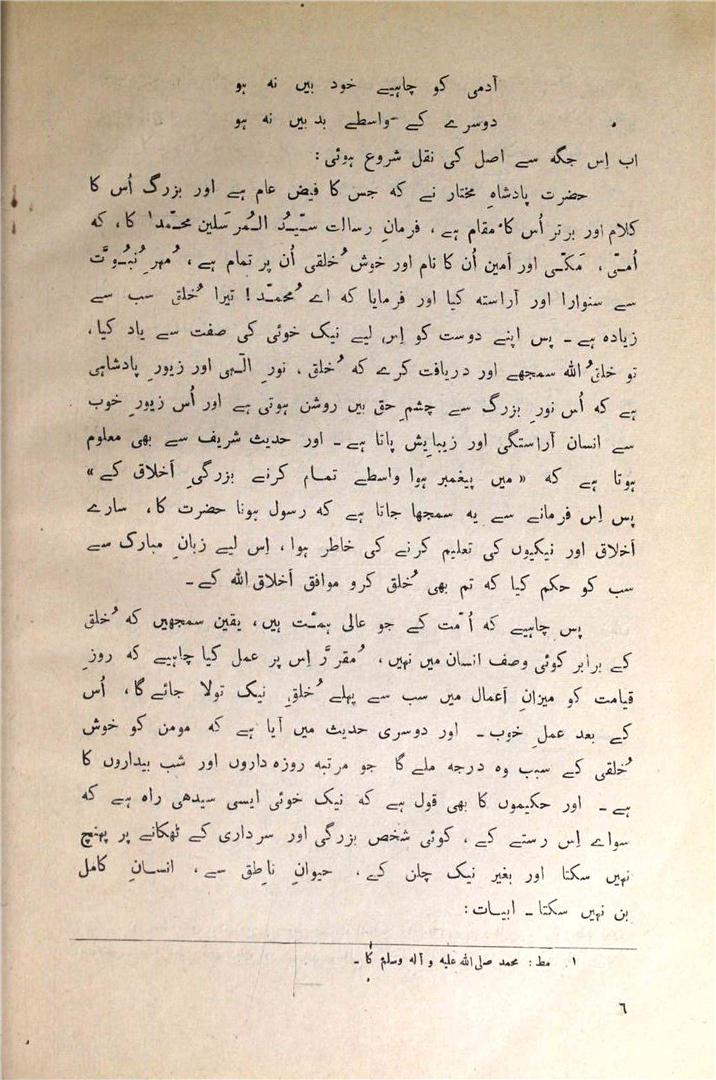 آدمی کو چاہیے خود بیں نہ ہو
دوسرے کے واسطے بد بیں نہ ہو
اب اِس جگہ سے اصل کی نقل شروع ہوئی :
حضرت پادشاہِ مختار نے کہ جس کا فیض عام ہے اور بزرگ اُس کا
کلام اور برتر اُس کا مقام ہے ، فرمانِ رسالت سیّدُ المُرسَلین محمّد۱ کا ، کہ
اُمّی ، مَکّی اور اَمین اُن کا نام اور خوش خُلقی اُن پر تمام ہے ، مُہرِ نُبُوَّت
سے سنوارا اور آراستہ کیا اور فرمایا کہ اے مُحمّد ! تیرا خُلق سب سے
زیادہ ہے ۔ پس اپنے دوست کو اِس لیے نیک خوئی کی صفت سے یاد کیا ،
تو خلقُ اللہ سمجھے اور دریافت کرے کہ خُلق ، نورِ الٰہی اور زیورِ پادشاہی
ہے کہ اُس نورِ بزرگ سے چشمِ حق بیں روشن ہوتی ہے اور اُس زیورِ خوب
سے انسان آراستگی اور زیبایش پاتا ہے ۔ اور حدیث شریف سے بھی معلوم
ہوتا ہے کہ « میں پیغمبر ہوا واسطے تمام کرنے بزرگیِ اَخلاق کے »
پس اِس فرمانے سے یہ سمجھا جاتا ہے کہ رسول ہونا حضرت کا ، سارے
اَخلاق اور نیکیوں کی تعلیم کرنے کی خاطر ہوا ، اِس لیے زبانِ مبارک سے
سب کو حکم کیا کہ تم بھی خُلق کرو موافق اَخلاق اللہ کے ۔
پس چاہیے کہ اُمّت کے جو عالی ہمّت ہیں ، یقین سمجھیں کہ خُلق
کے برابر کوئی وصف انسان میں نہیں ، مُقرَّر اِس پر عمل کیا چاہیے کہ روزِ
قیامت کو میزانِ اَعمال میں سب سے پہلے خُلقِ نیک تولا جائے گا ، اُس
کے بعد عملِ خوب ۔ اور دوسری حدیث میں آیا ہے کہ مومن کو خوش
خُلقی کے سبب وہ درجہ ملے گا جو مرتبہ روزہ داروں اور شب بیداروں کا
ہے ۔ اور حکیموں کا بھی قول ہے کہ نیک خوئی ایسی سیدھی راہ ہے کہ
سواے اِس رستے کے ، کوئی شخص بزرگی اور سرداری کے ٹھکانے پر پہنچ
نہیں سکتا اور بغیر نیک چلن کے ، حیوانِ ناطق سے ، انسانِ کامل
بن نہیں سکتا ۔ ابیات :
۱۔ مط : محمد صلی اللہ علیہ و آلہ وسلم کا ۔
٦